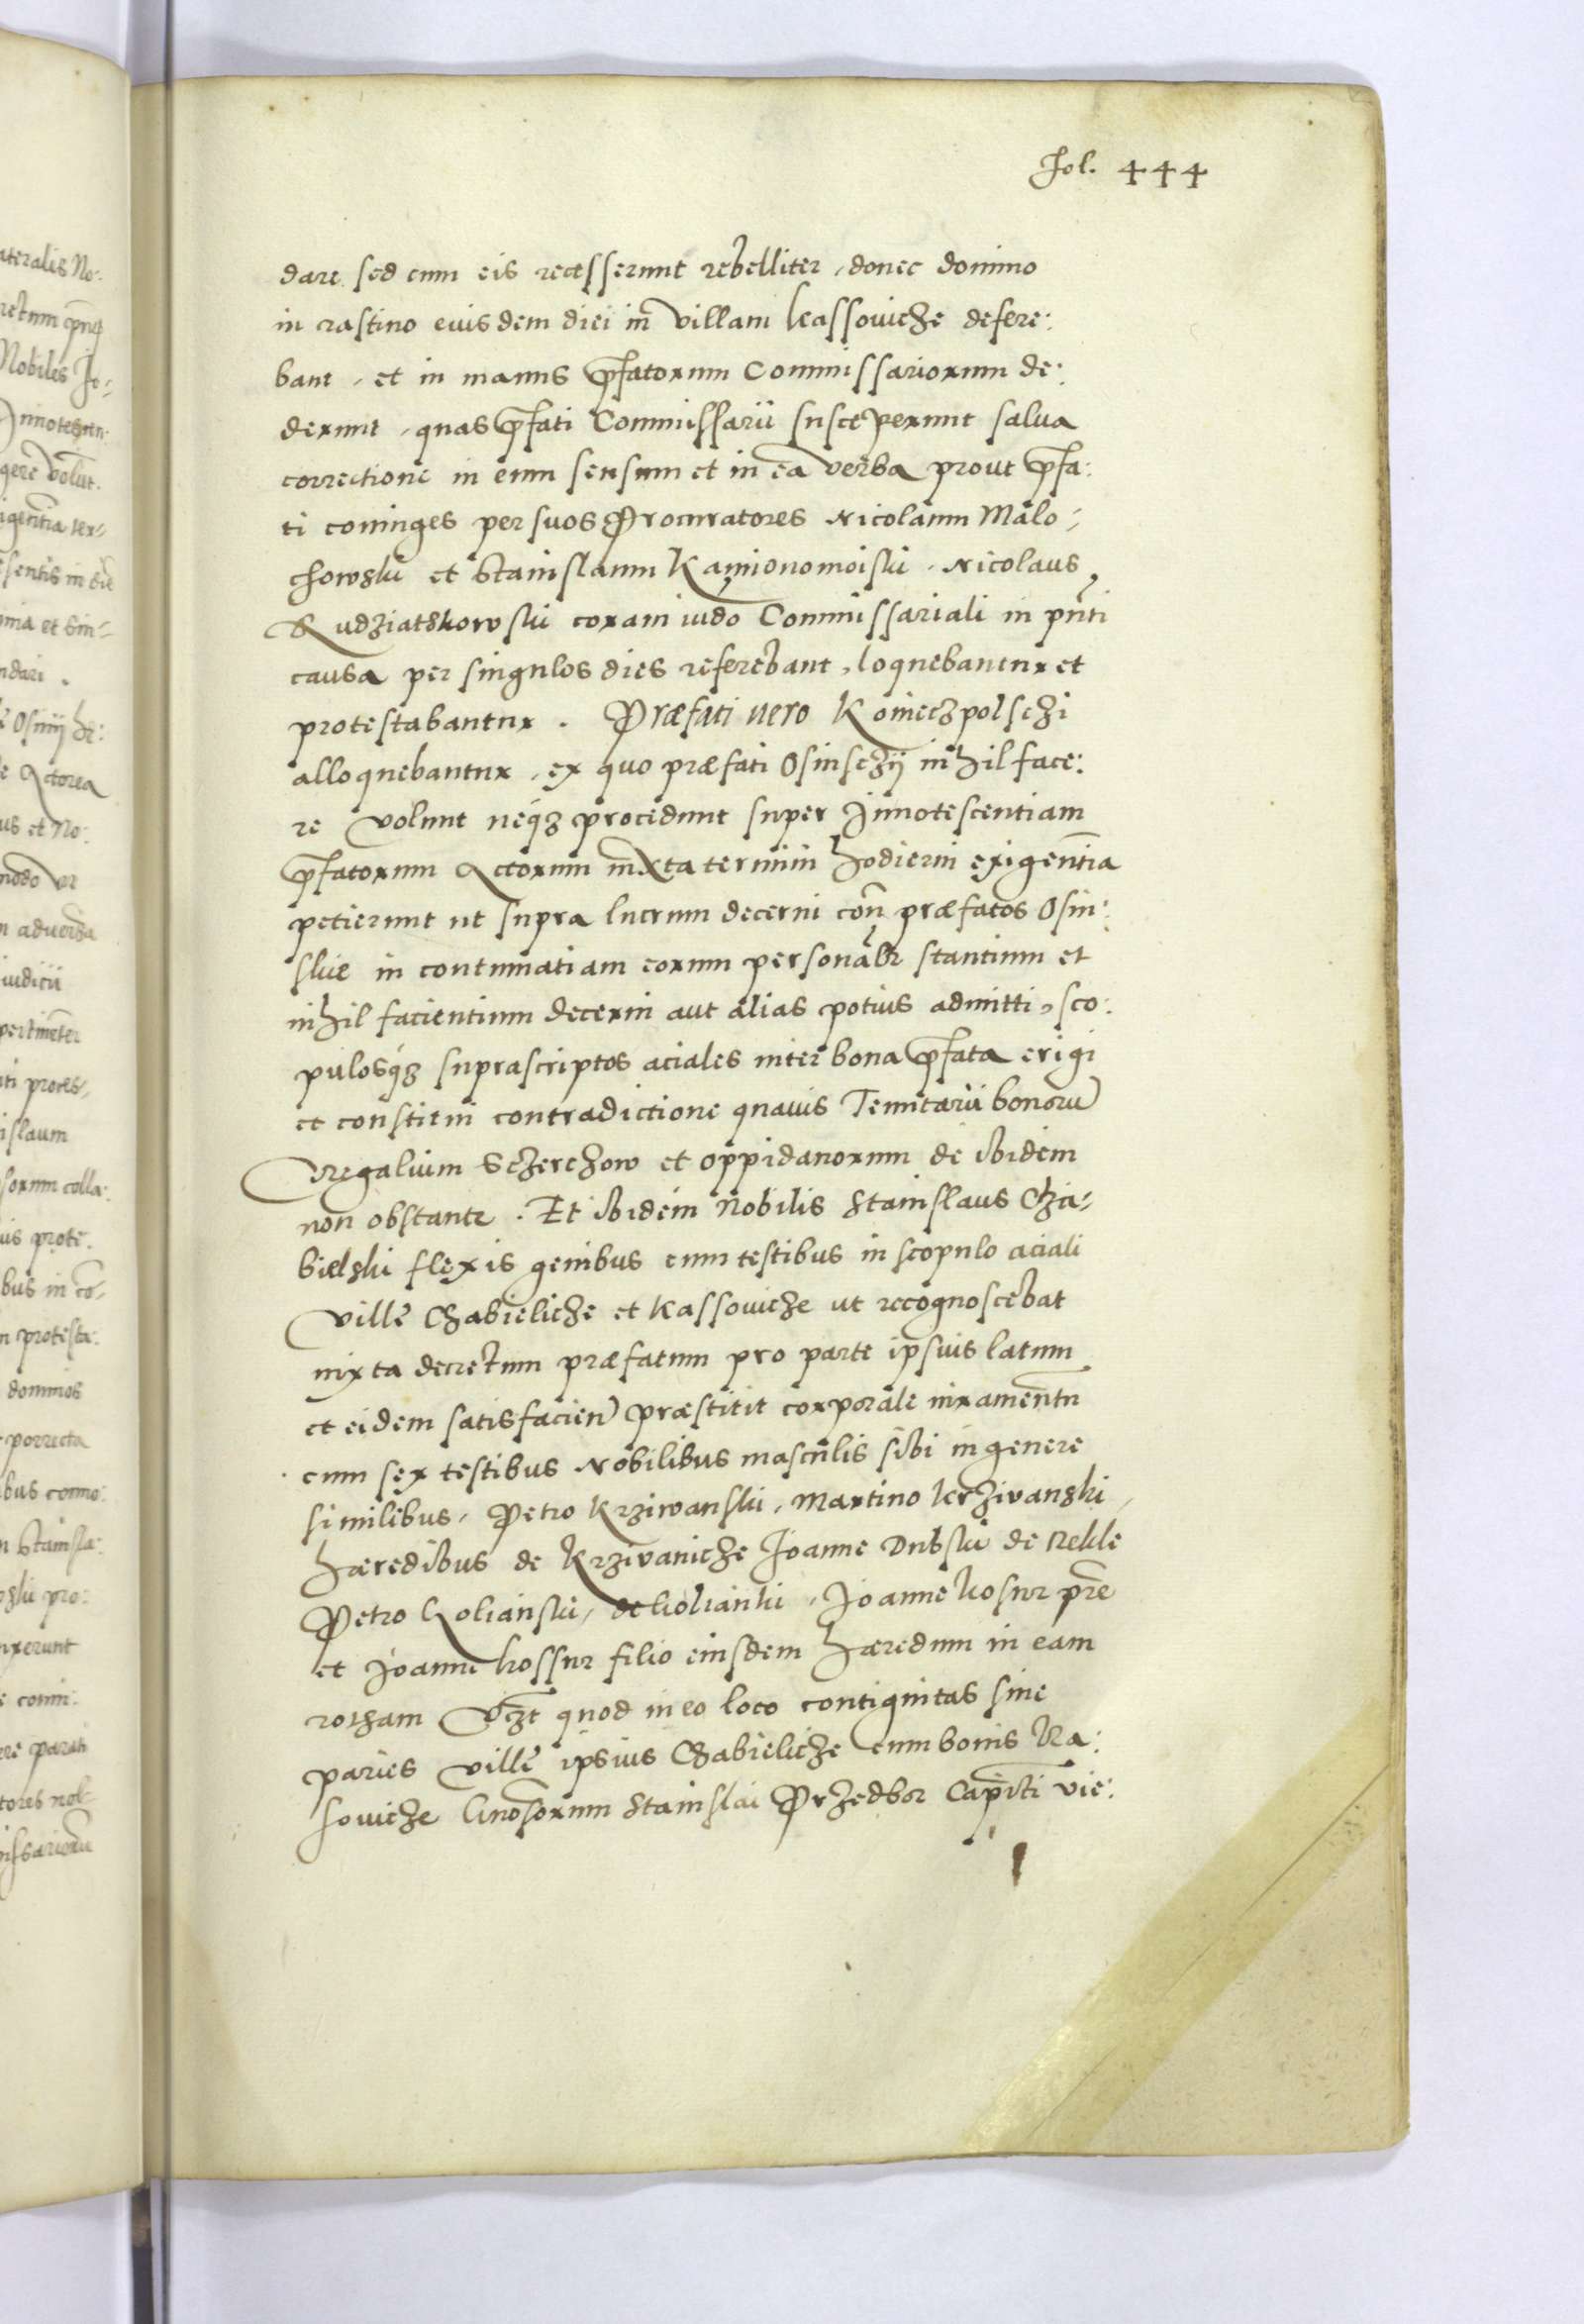 fol. 444
dare sed cum eis recesserunt rebelliter, donec domino
in crastino eiusdem diei in villam Kassouicze defere:
bant, et in manus pfatorum Commissariorum de:
derunt, quas pfati Commissarii susceperunt salua
correctione in eum sensum et in ea verba prout pfa:
ti coniuges per suos Procuratores Nicolaum Malo:
chowski et Stanislaum Kamionomoiski, Nicolaus
Rudziatskowski coram iudo Commissariali in pnti
causa per singulos dies referebant, loquebantur et
protestabantur. Præfati uero Konieczpolsczi
alloquebantur, ex quo præfati Osinsczij nihil face:
re volunt neqz procedunt super Innotescentiam
pfatorum Actorum iuxta termini hodierni exigentia
petierunt ut supra lucrum decerni con præfatos Osin:
skie in contumatiam eorum personalr stantium et
nihil facientium decerni aut alias potius admitti, sco:
pulosqz suprascriptos aciales inter bona pfata erigi
et constitui contradictione quauis Tenutarii bonoru
Regalium Sczerczow et oppidanorum de ibidem
non obstante. Et ibidem Nobilis Stanislaus Cha:
bielski flexis genibus cum testibus in scopulo aciali
Ville Chabielicze et Kassouicze ut recognoscebat
iuxta decretum præfatum pro parte ipsius latum
et eidem satisfacien præstitit corporale iuramentu
cum sex testibus Nobilibus masculis sibi in genere
similibus, Petro Krziwanski, Martino Krzivanski,
hæredibus de Krzivanicze Joanne Dubski de Rekle
Petro Kolianski, de kolianki, Joanne kosur pre
et Joanne kossur filio eiusdem hæredum in eam
rotham Vzt quod in eo loco contiguitas siue
paries ville ipsius Chabielicze cum bonis Ka:
souicze Gnosorum Stanislai Przedbor Capiti Vie: